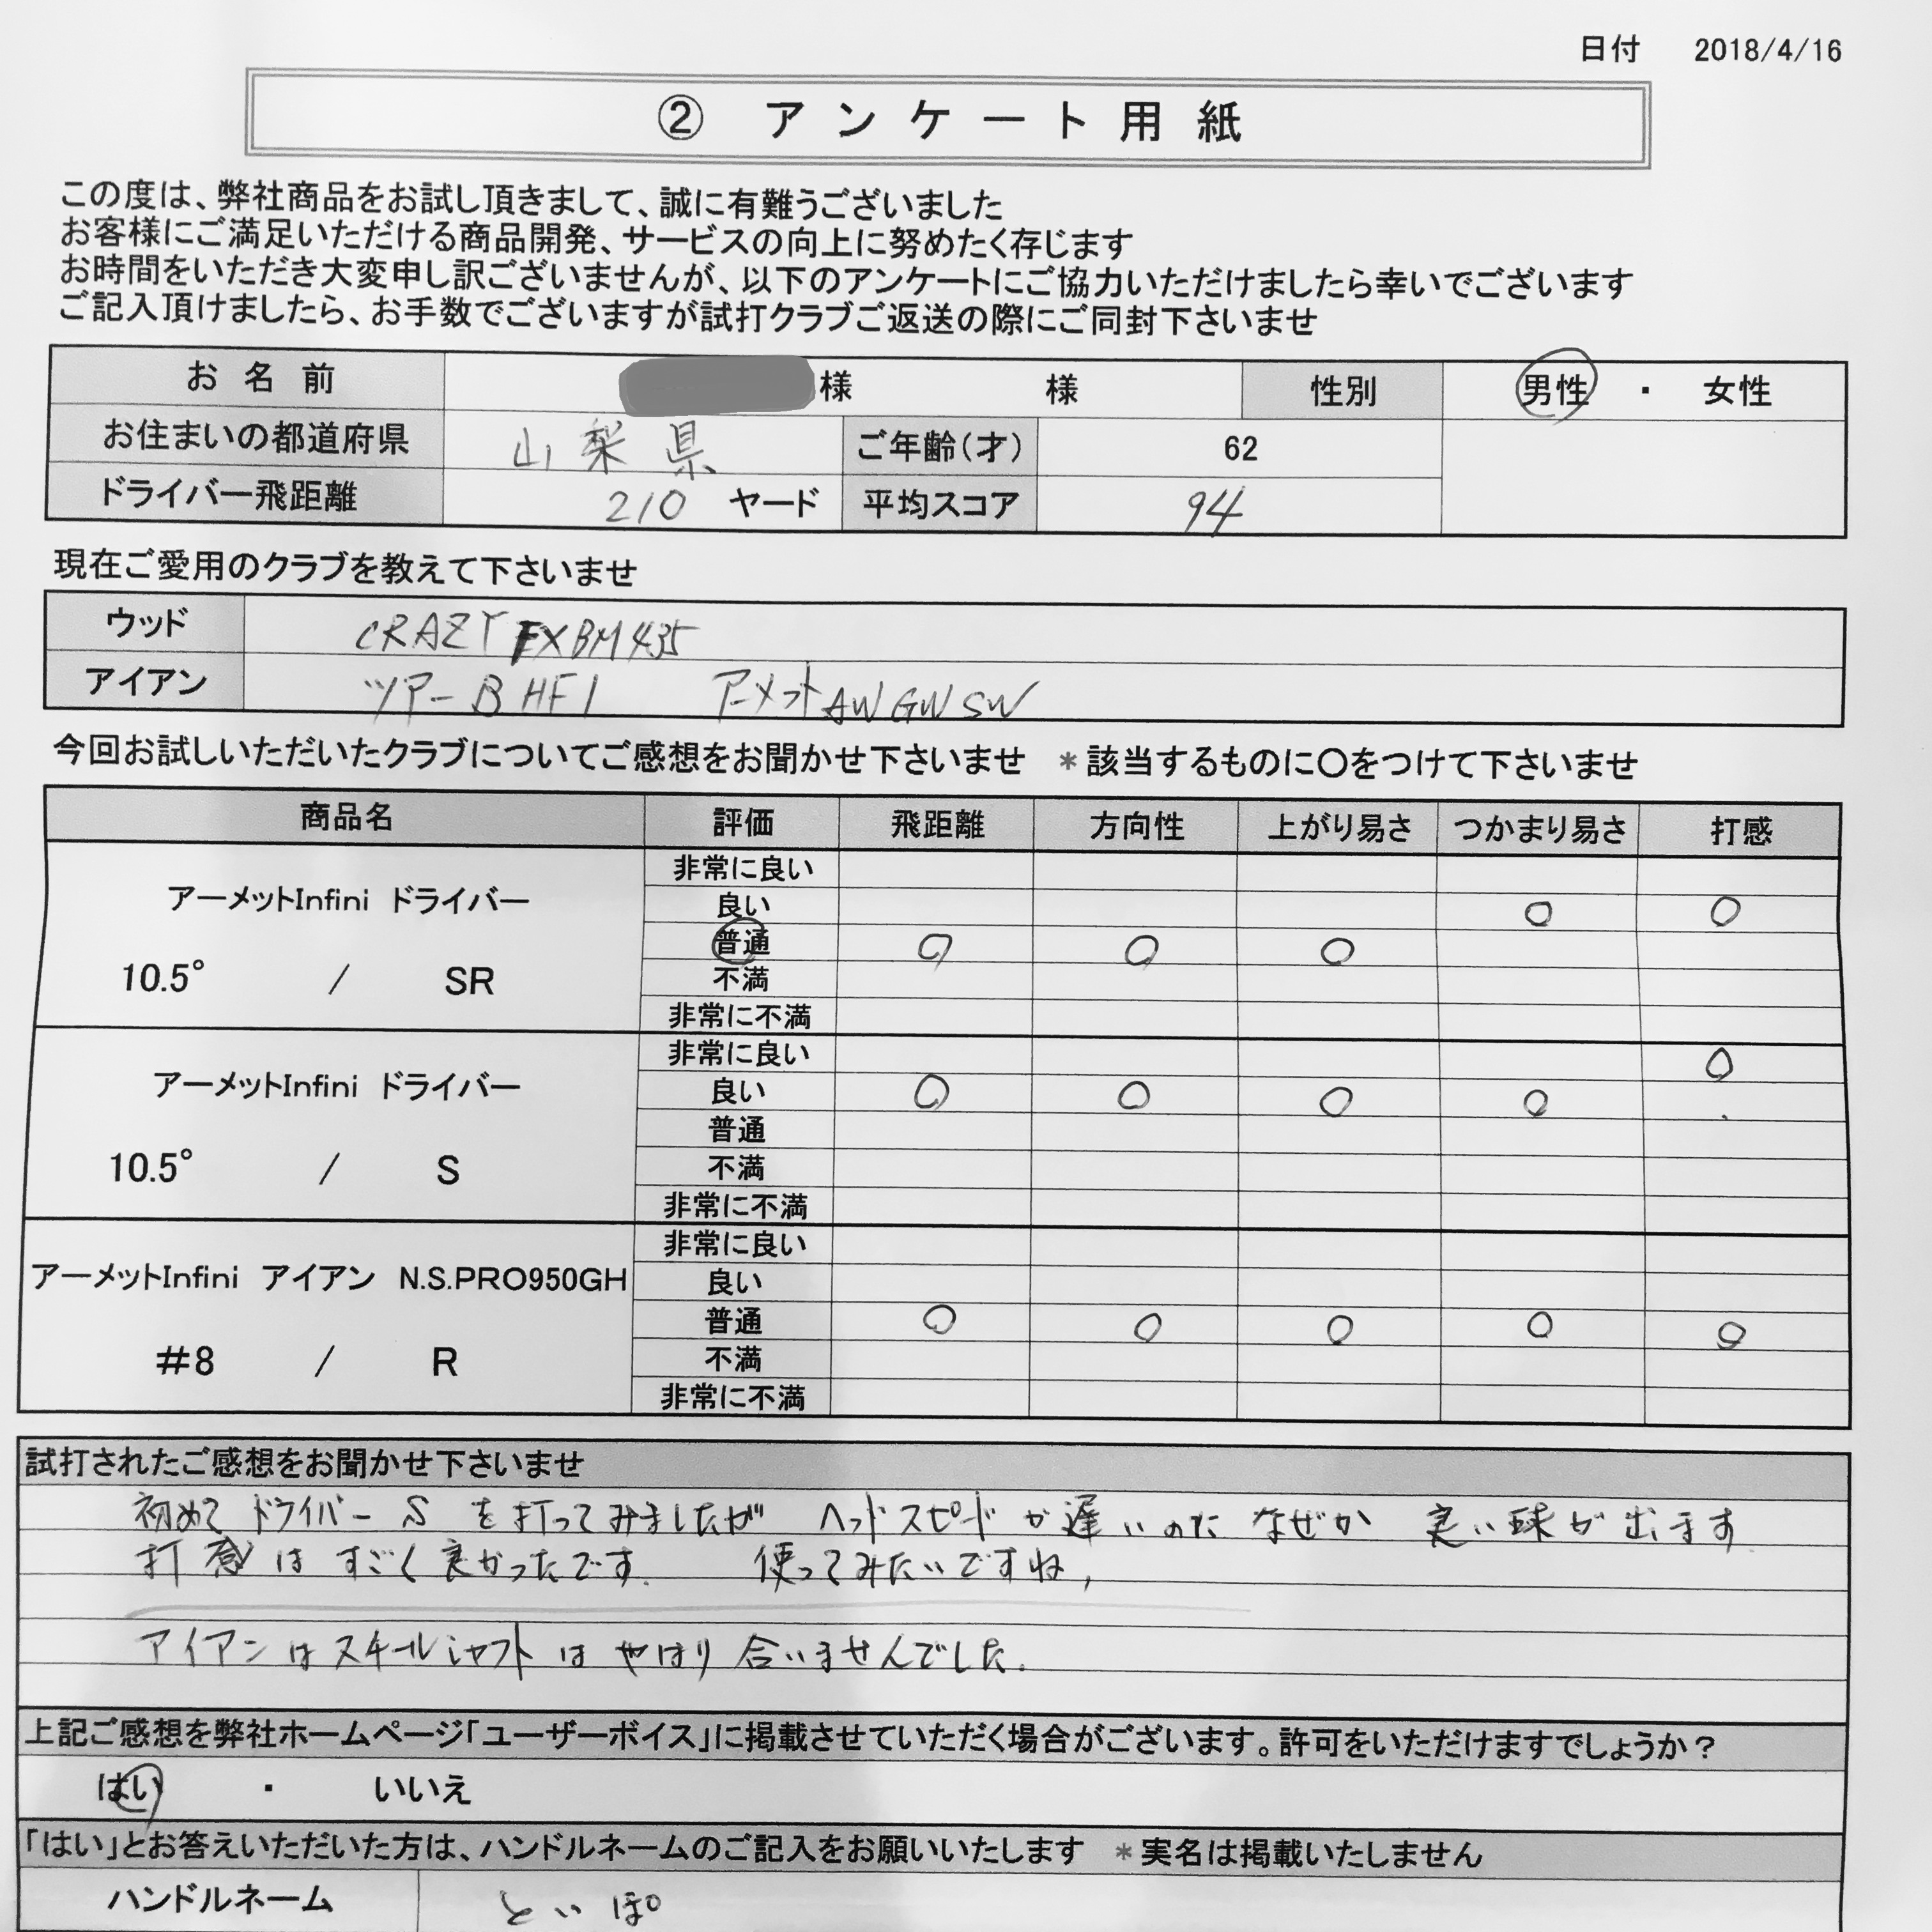 日付 2018/4/16
② アンケート用紙
この度は、弊社商品をお試し頂きまして、誠に有難うございました
お客様にご満足いただける商品開発、サービスの向上に努めたく存じます
お時間をいただき大変申し訳ございませんが、以下のアンケートにご協力いただけましたら幸いでございます
ご記入頂けましたら、お手数でございますが試打クラブご返送の際にご同封下さいませ
お名前 様 様 性別 男性 ・ 女性
お住まいの都道府県 山梨県 ご年齢(才) 62
ドライバー飛距離 210 ヤード 平均スコア 94
現在ご愛用のクラブを教えて下さいませ
ウッド CRAZY EXBM435
アイアン ツアーB HF1 アーメット AW GW SW
今回お試しいただいたクラブについてご感想をお聞かせ下さいませ *該当するものに〇をつけて下さいませ
商品名 評価 飛距離 方向性 上がり易さ つかまり易さ 打感
アーメットInfini ドライバー
10.5° / SR
非常に良い
良い ○ ○
普通 ○ ○ ○
不満
非常に不満
アーメットInfini ドライバー
10.5° / S
非常に良い ○
良い ○ ○ ○ ○
普通
不満
非常に不満
アーメットInfini アイアン N.S.PRO950GH
#8 / R
非常に良い
良い
普通 ○ ○ ○ ○ ○
不満
非常に不満
試打されたご感想をお聞かせ下さいませ
初めてドライバー S を打ってみましたが ヘッドスピードが遅いのに なぜか 良い球が出ます
打感はすごく良かったです. 使ってみたいですね,
アイアンはスチールシャフトはやはり合いませんでした.
上記ご感想を弊社ホームページ「ユーザーボイス」に掲載させていただく場合がございます。許可をいただけますでしょうか？
はい ・ いいえ
「はい」とお答えいただいた方は、ハンドルネームのご記入をお願いいたします *実名は掲載いたしません
ハンドルネーム といぽ